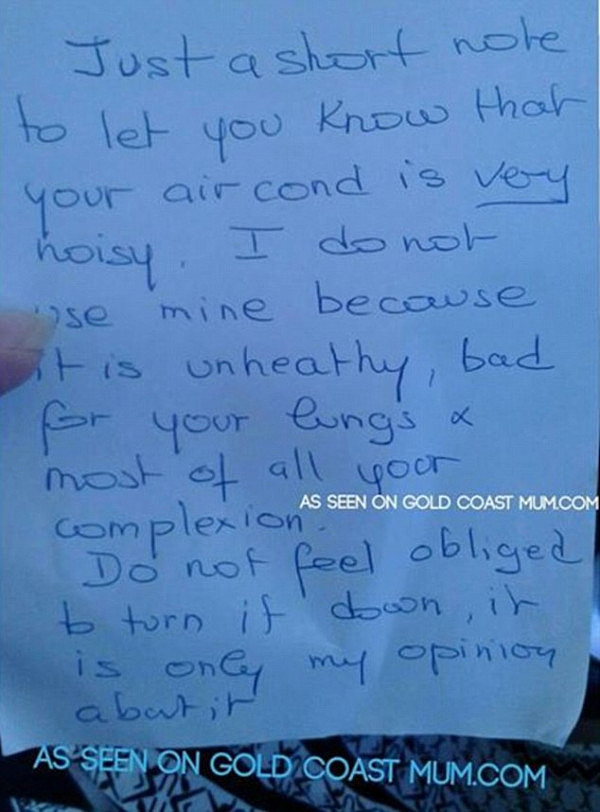 Just a short note
to let you know that
your air cond is very
noisy. I do not
use mine because
it is unheathy, bad
for your lungs &
most of all your
AS SEEN ON GOLD COAST MUM.COM
complexion.
Do not feel obliged
to turn it down, it
is only my opinion
about it
AS SEEN ON GOLD COAST MUM.COM